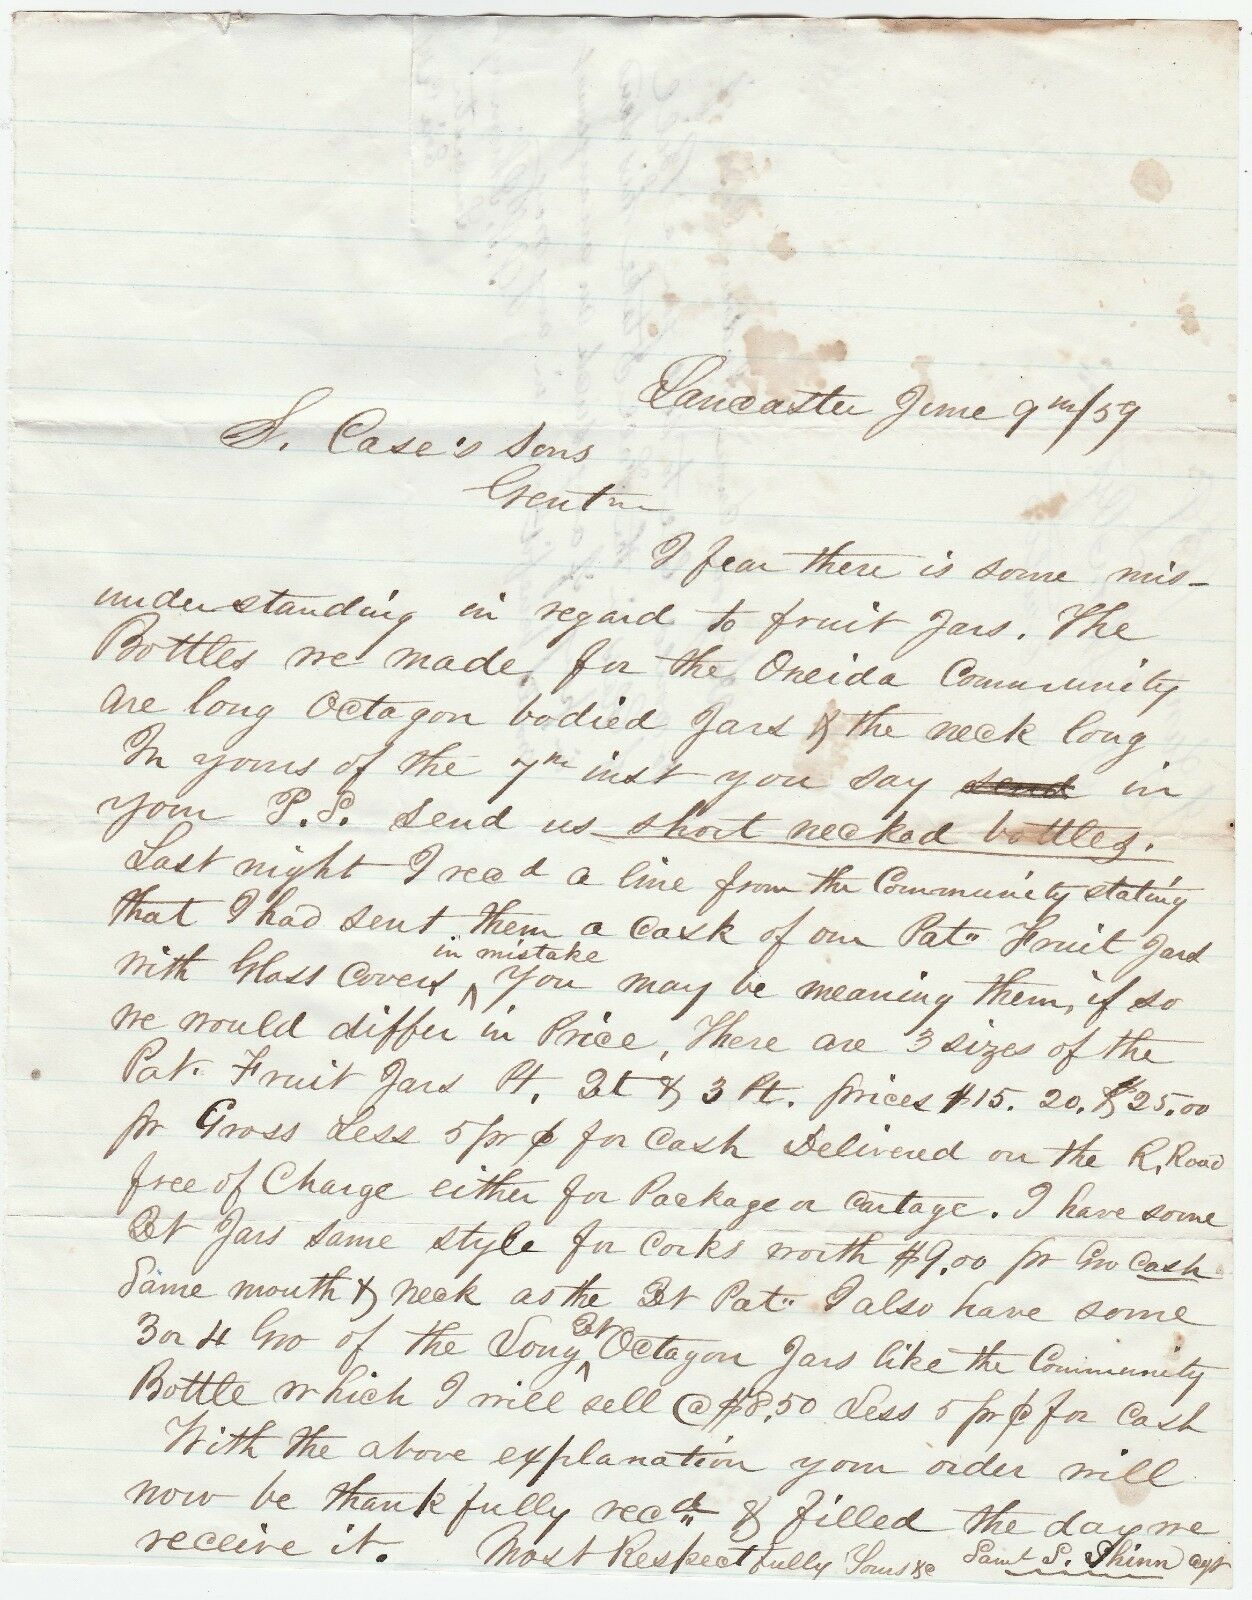 Lancaster June 9th/59
S. Case's Sons
Gentm
I fear there is some mis-
understanding in regard to fruit Jars. The
Bottles we made for the Oneida Community
are long Octagon bodied Jars & the neck long
In yours of the 7th inst you say send in
your P.S. send us short necked bottles.
Last night I recd a line from the Community stating
that I had sent them a Cask of our Pat" Fruit Jars
in mistake
with Glass Covers ^ You may be meaning them, if so
we would differ in Price, There are 3 sizes of the
Pat. Fruit Jars Pt. Qt & 3 Pt. prices $15. 20. & $25.00
pr Gross Less 5 pr ct for Cash Delivered on the R. Road
free of Charge either for Package or Cartage. I have some
Qt Jars same style for Corks worth $9.00 pr Gro Cash
Same mouth & neck as the Qt Pat" I also have some
3 or 4 Gro of the Long ^ Qt Octagon Jars like the Community
Bottle which I will sell @ $8.50 Less 5 pr ct for Cash
With the above explanation your order will
now be thankfully recd & filled the day we
receive it. Most Respectfully Yours &c Saml S. Shinn agt